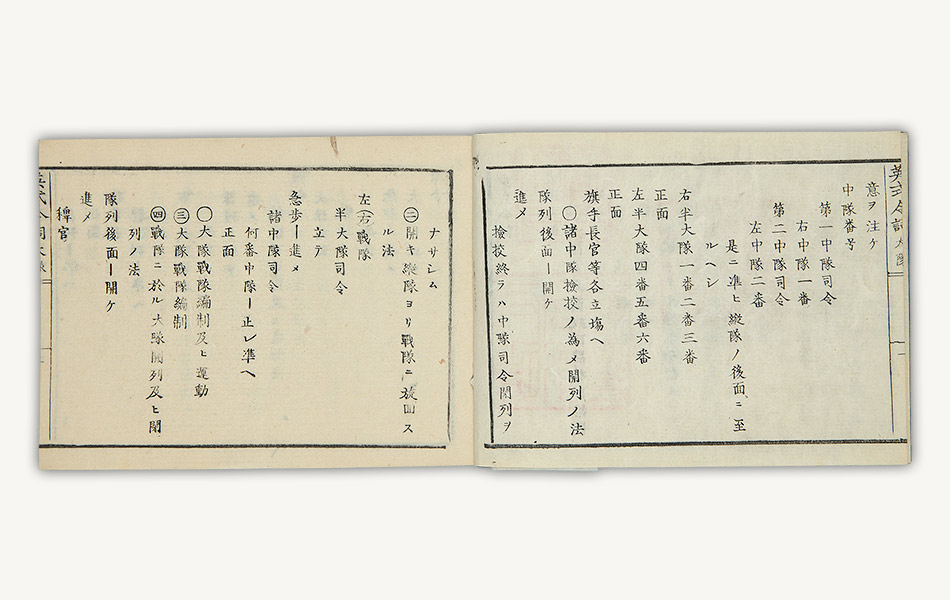 意ヲ注ケ
中隊番号
第一中隊司令
右中隊一番
第二中隊司令
左中隊二番
是ニ準ヒ縦隊ノ後面ニ至
ルヘシ
右半大隊一番二番三番
正面
左半大隊四番五番六番
正面
旗手長官等各立場ヘ
〇諸中隊検校ノ為メ開列ノ法
隊列後面ー開ケ
進メ
検校終ラハ中隊司令閉列ヲ
ナサシム
㊁開キ縦隊ヨリ戦隊ニ旋回ス
ル法
左㊨戦隊
半大隊司令
立テ
急歩ー進メ
諸中隊司令
何番中隊ー止レ準ヘ
正面
〇大隊戦隊編制及ヒ運動
㊂大隊戦隊編制
㊃戦隊ニ於ル大隊開列及ヒ閉
列ノ法
隊列後面ー開ケ
進メ
稗官